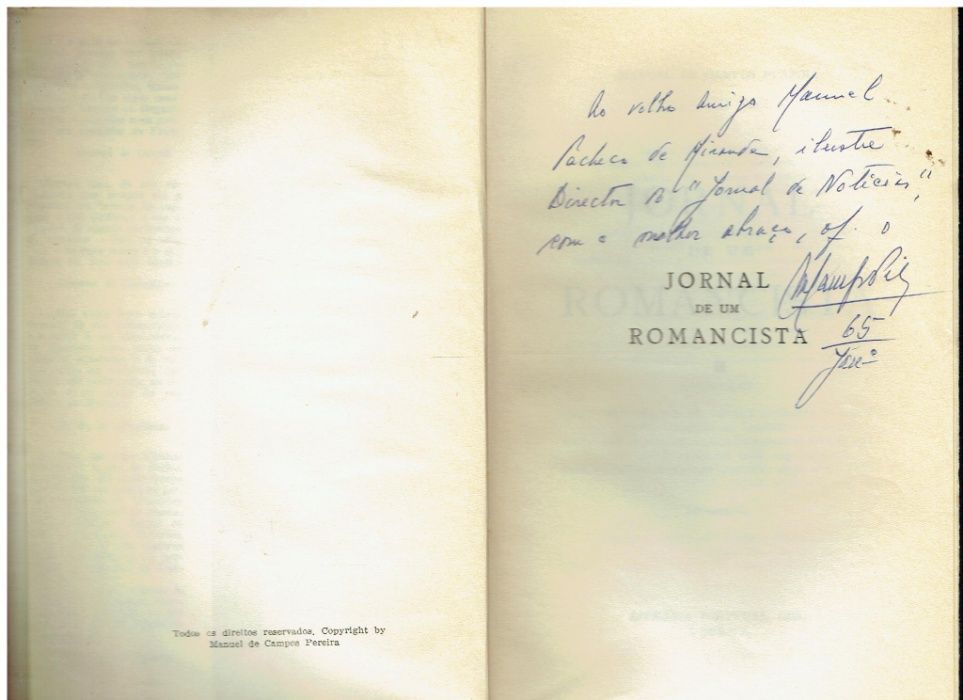 Todos os direitos reservados, Copyright by
Manuel de Campos Pereira
Ao velho Amigo Manuel
Pacheco de Miranda, ilustre
Director do "Jornal de Notícias",
com o melhor abraço, of. o
65
Jan.º
JORNAL
DE UM
ROMANCISTA